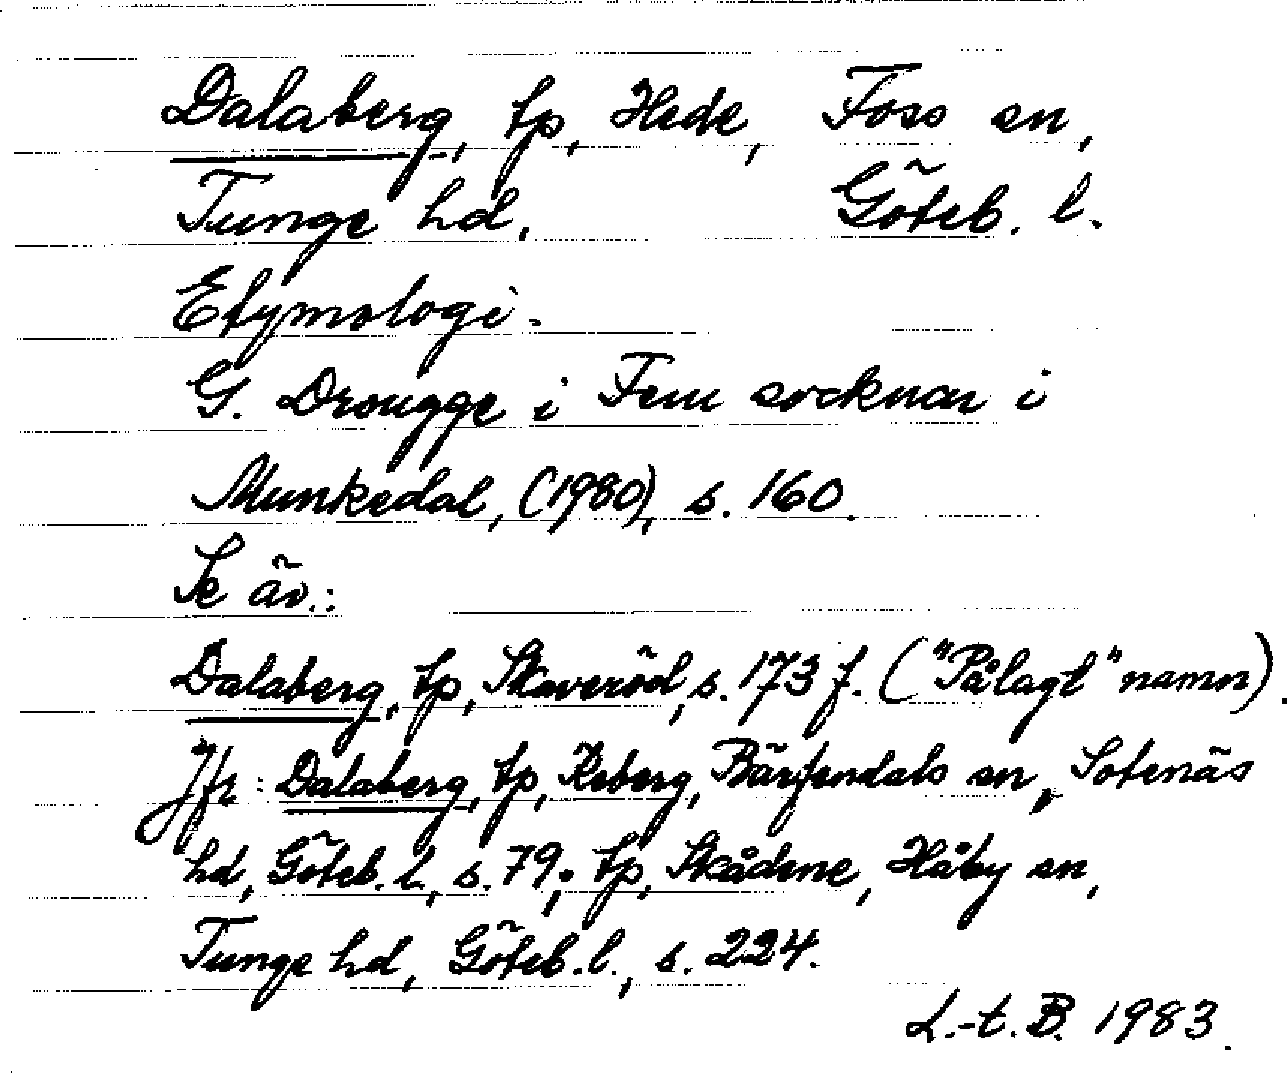 Dalaberg, tp, Hede, Foss sn,
Tunge hd. Göteb. l.
Etymologi.
G. Drougge i Fem socknar i
Munkedal, (1980), s. 160.
Se äv.:
Dalaberg, tp, Skaveröd, s. 173 f. ("Pålagt" namn).
Jfr: Dalaberg, tp, Keberg, Bärfendals sn, Sotenäs
hd, Göteb. l., s. 79; tp, Skådene, Håby sn,
Tunge hd, Göteb. l., s. 224.
L.-t. B. 1983.